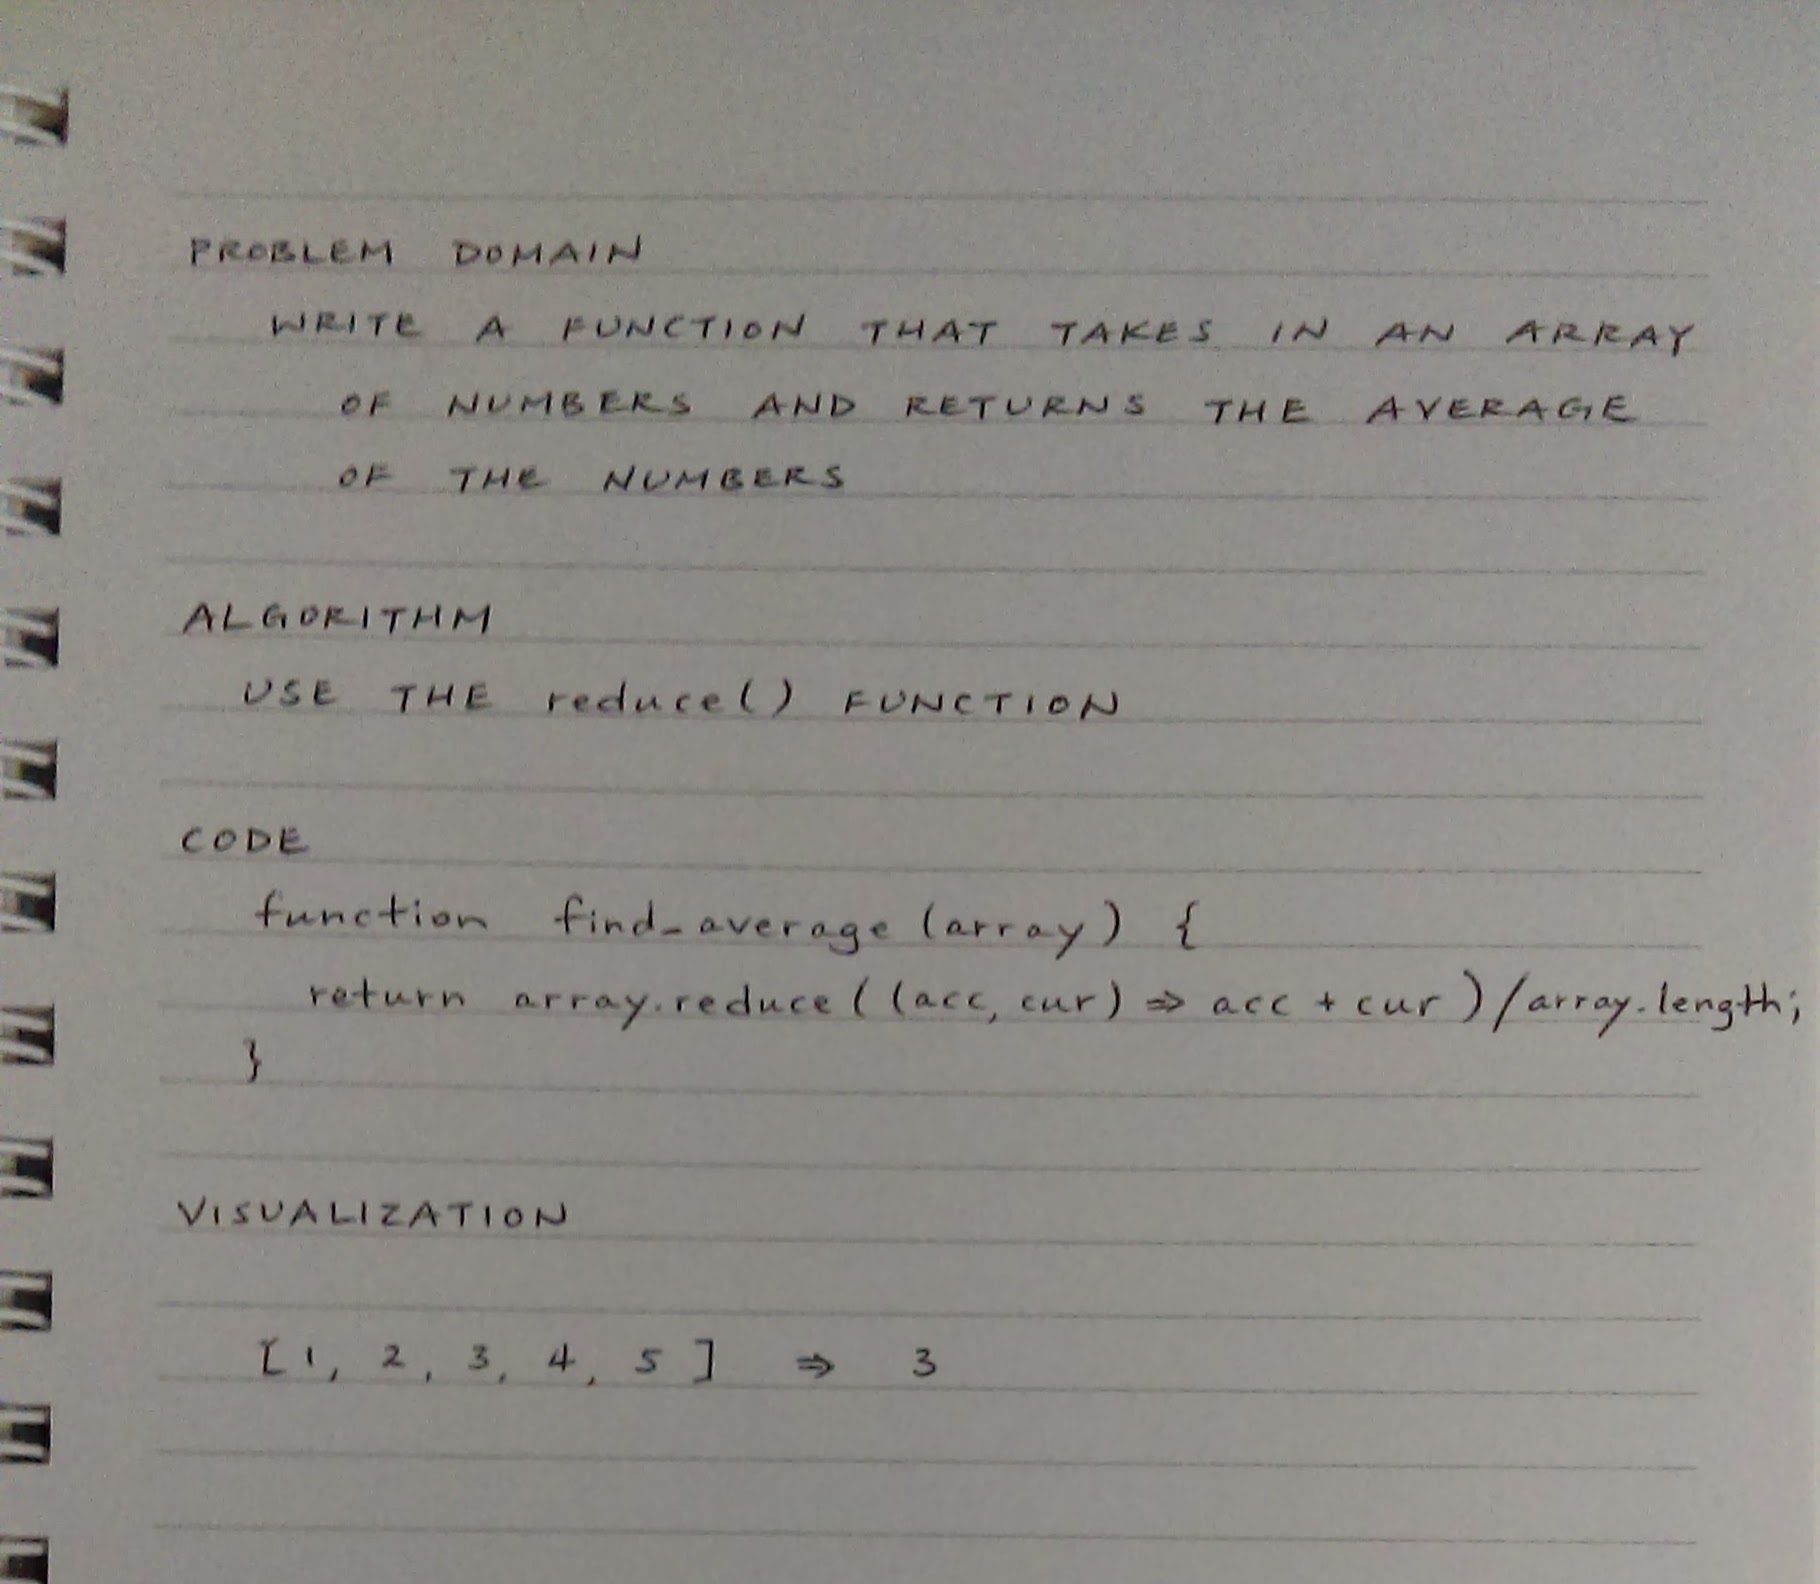 PROBLEM DOMAIN
WRITE A FUNCTION THAT TAKES IN AN ARRAY
OF NUMBERS AND RETURNS THE AVERAGE
OF THE NUMBERS
ALGORITHM
USE THE reduce() FUNCTION
CODE
function find_average (array) {
return array.reduce ( (acc, cur) => acc + cur ) / array.length;
}
VISUALIZATION
[1, 2, 3, 4, 5] => 3